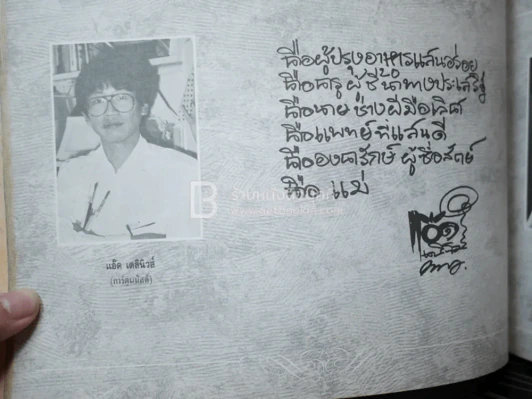 คือผู้ปรุงอาหารแสนอร่อย
คือครู ผู้ชี้นำทางประเสริฐ
คือนายช่างฝีมือเลิศ
คือแพทย์ที่แสนดี
คือองครักษ์ ผู้ซื่อสัตย์
คือ แม่
แอ๊ด เดลินิวส์
(การ์ตูนนิสต์)